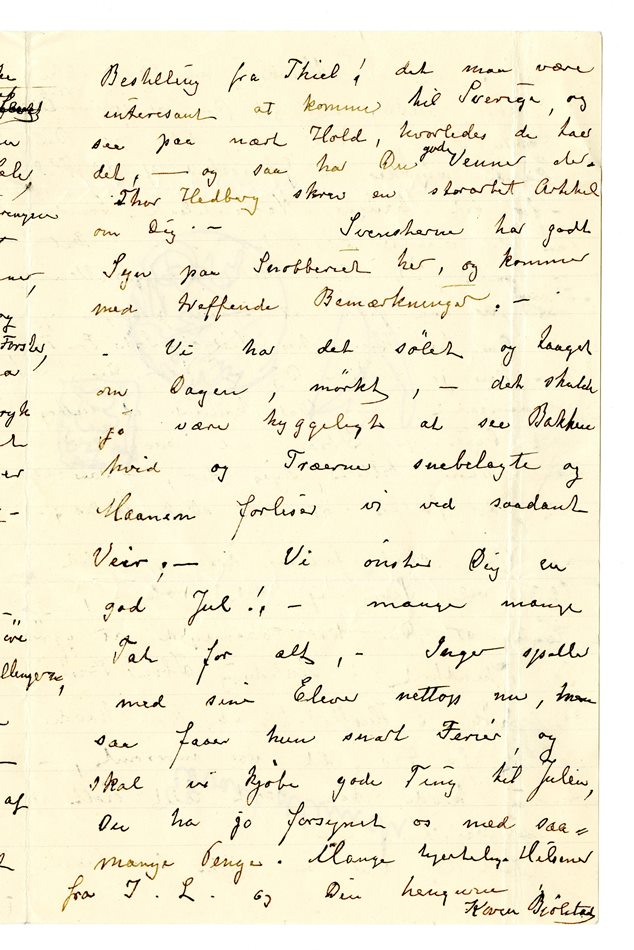 Bestilling fra Thiel! det maa være
interesant at komme til Sverige, og
see paa nært Hold, hvorledes de taer
det, — og saa har Du gode Venner der.
Thor Hedberg skrev en storartet Artikel
om Dig. — Svenskerne har godt
Syn paa Snobberiet her, og kommer
med træffende Bemærkninger. —
- Vi har det sølet og taaget
om Dagen, mørkt, — det skulde
jo være hyggeligt at see Bakken
hvid og Træerne snebelagte og
Maanen forliser vi ved saadant
Veir; — Vi ønsker Dig en
god Jul!, — mange mange
Tak for alt, — Inger spiller
med sine Elever nettop nu, men
saa faaer hun snart Ferier, og
skal vi kjøbe gode Ting til Julen,
Du har jo forsynet os med saa=
mange Penge. Mange hjertelige Hilsener
fra I. L. og Din hengivne
Karen Bjølstad